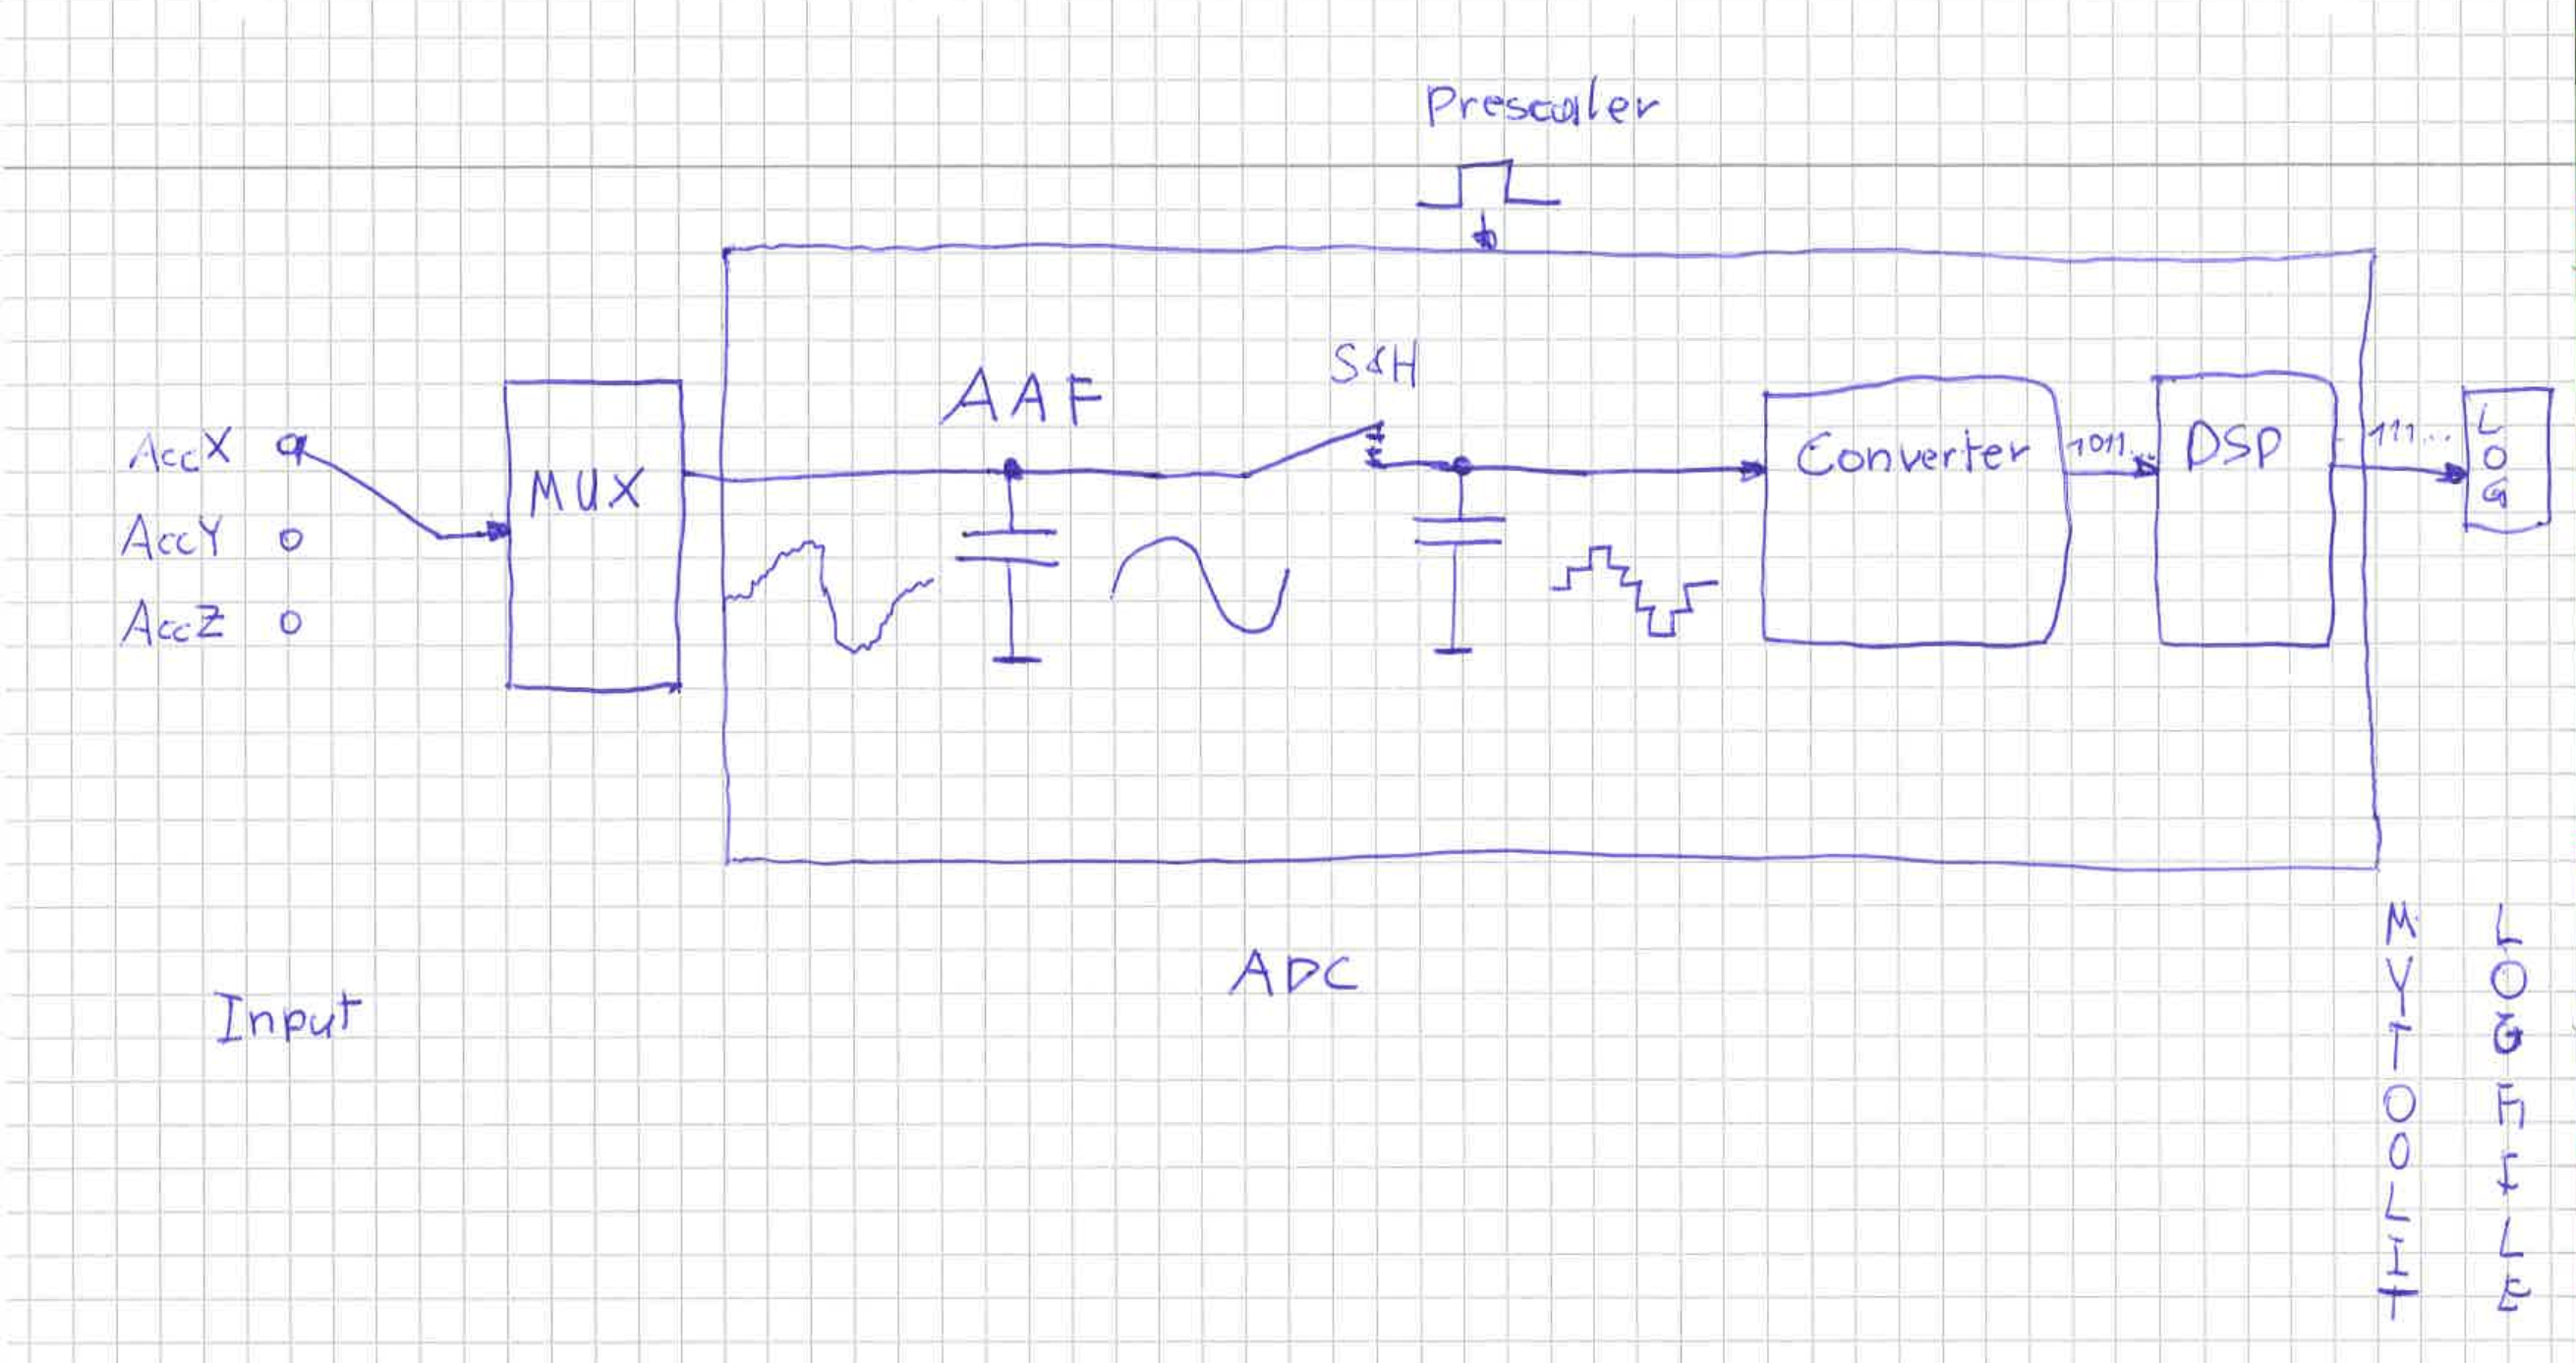 Prescaler
S&H
AAF
AccX
AccY
AccZ
MUX
Converter
1011..
DSP
111...
LOG
ADC
Input
MYTOOLIT
LOGFILE